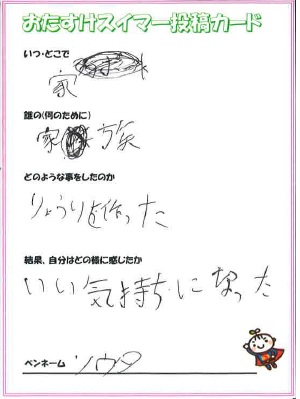 おたすけスイマー投稿カード
いつ・どこで
家
誰の(何のために)
家族
どのような事をしたのか
りょうりを作った
結果、自分はどの様に感じたか
いい気持ちになった
ペンネーム ソウタ